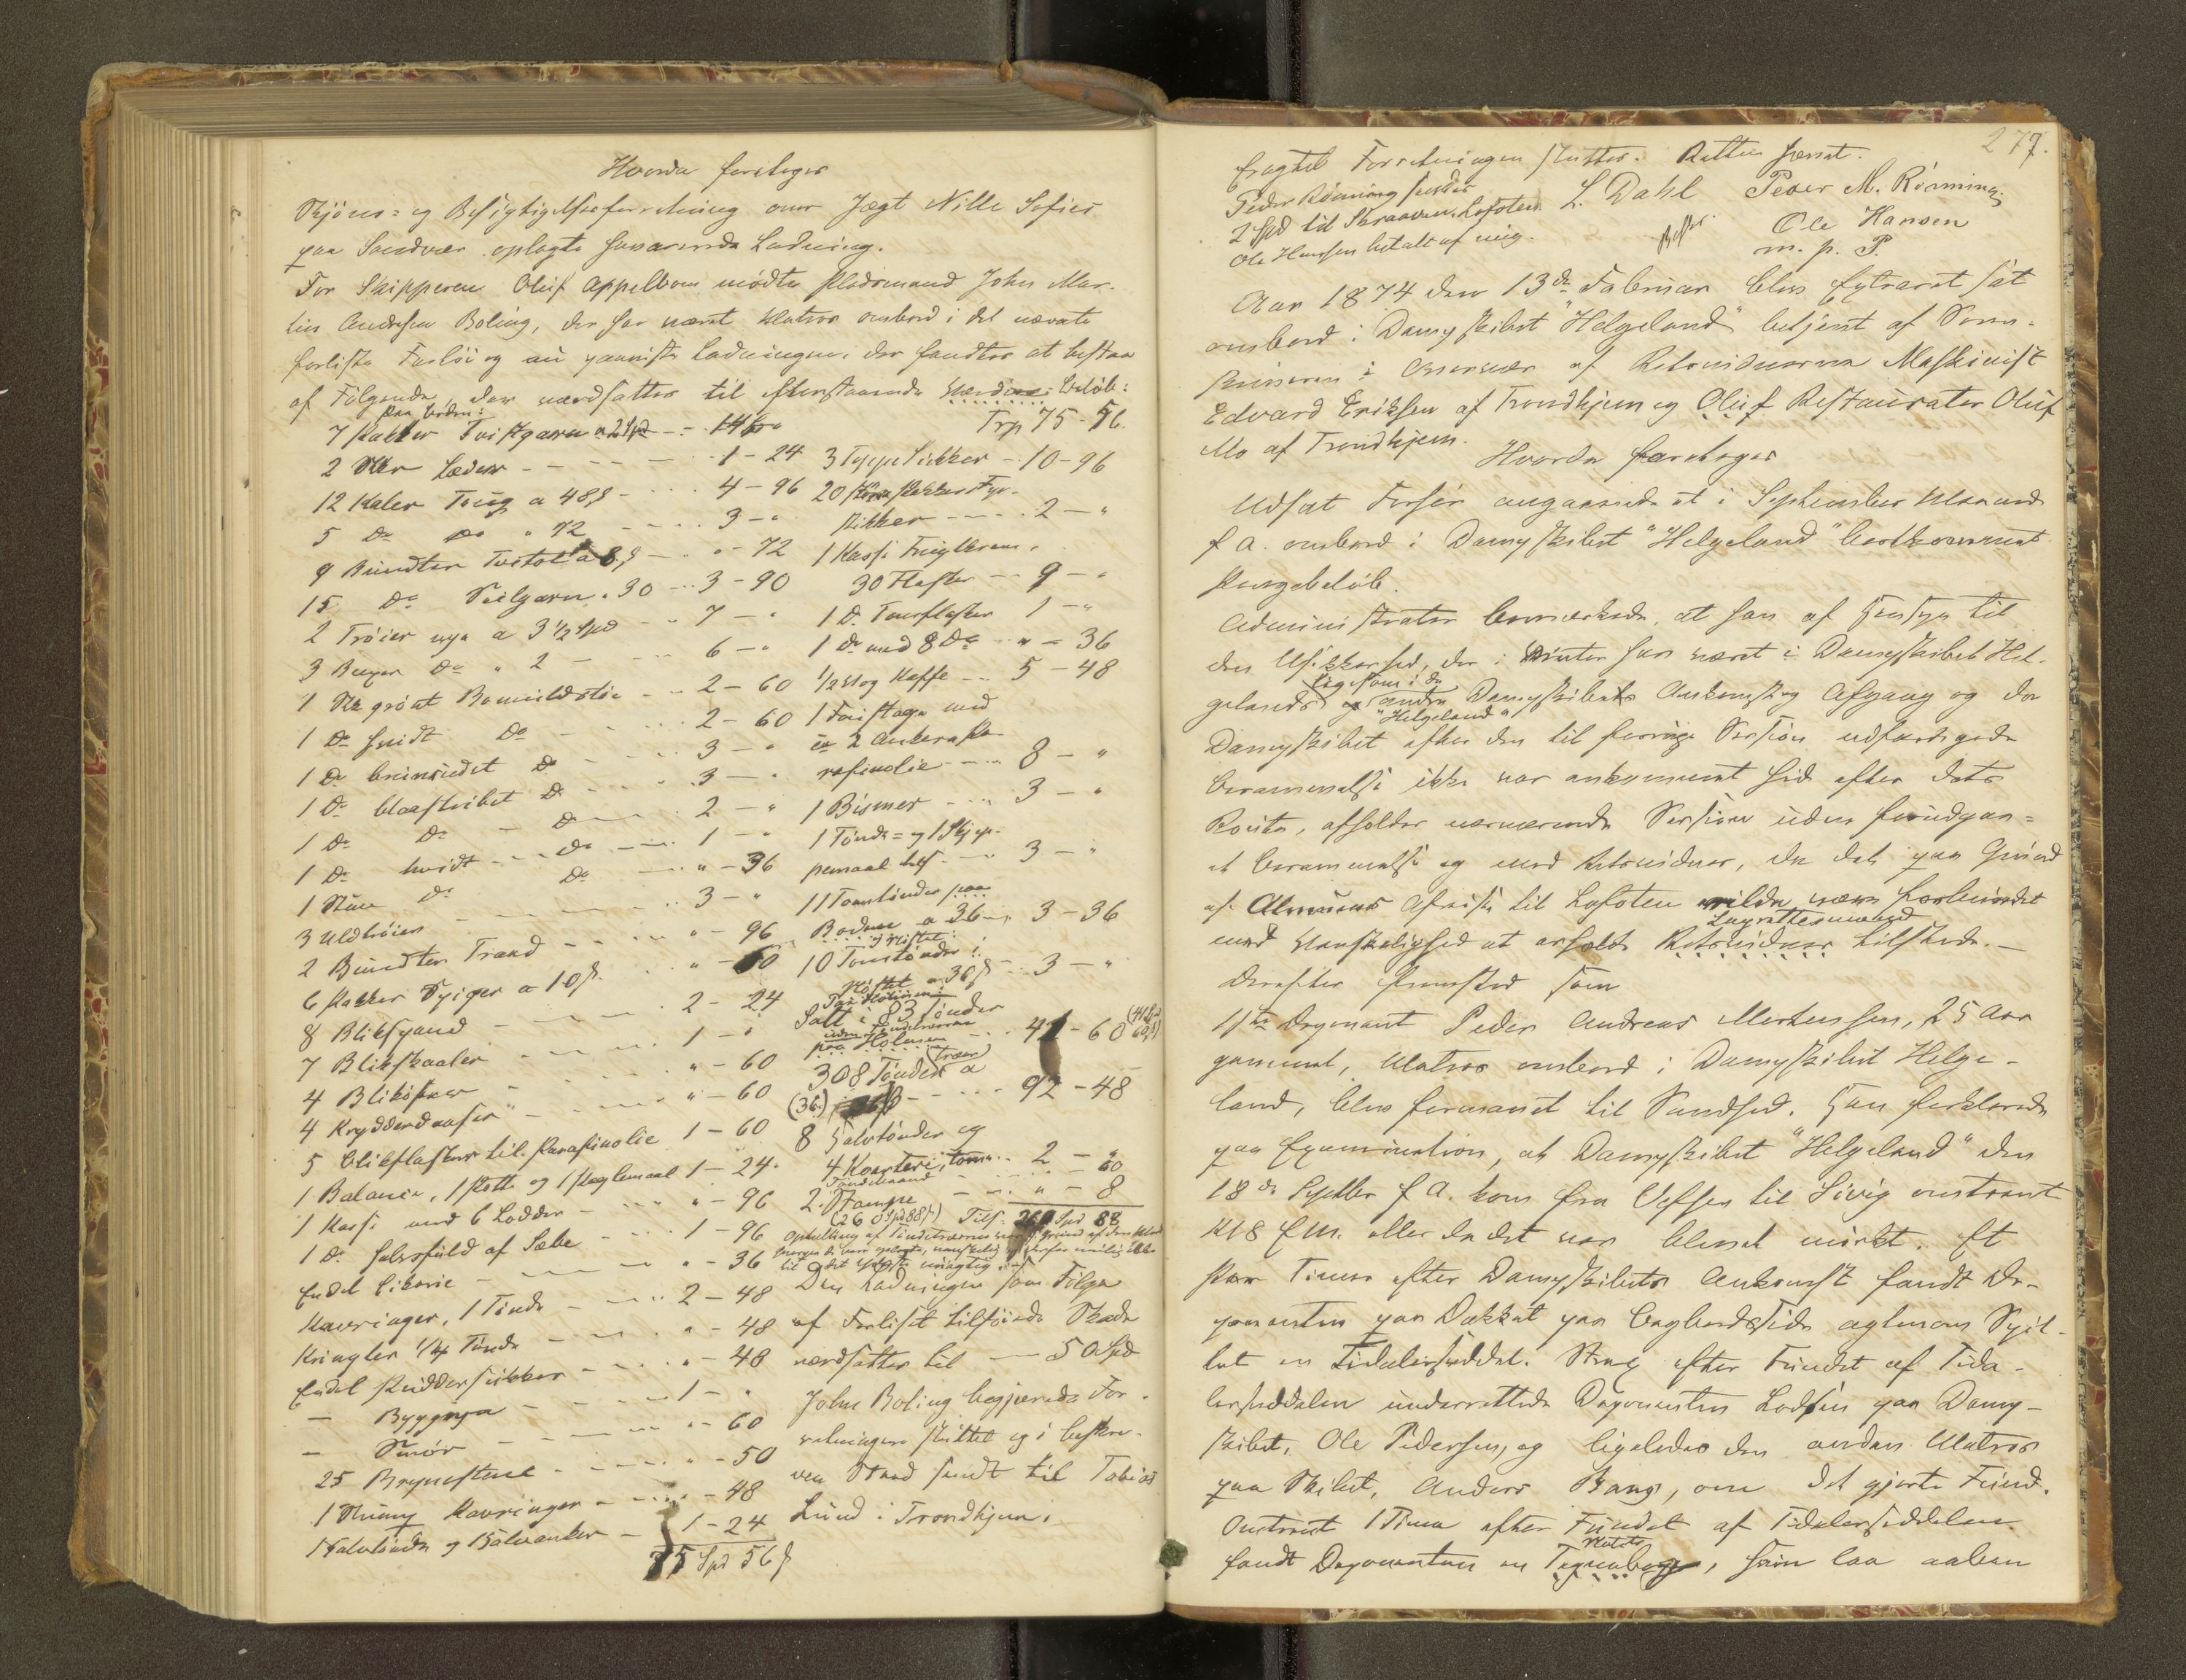 Hvorda foretoges
Skjöns= og Besigtigelsesforretning over Jægt Nille Sofies
paa Sandvær oplagte havarerede Ladning.
For Skipperen Oluf Appelbom mödte Pladsmand John Mar-
tin Andersen Boling, der har været Matros ombord i det nævnte
forliste Fartöi og nu paaviste Ladningen, der fandtes at bestaa
af Fölgende, der værdsattes til efterstaaende Beløb:
7 Pakker Tvistgarn a 2 Spd - - 14 - "
Trp 75 - 56.
2 Skr Læder - - - 1 - 24
3 Toppe Sukker - 10 - 96
12 Kaler Toug a 48 ß - - 4 - 96
5 Do Do " 72 - - - 3 - "
Sikker - - - 2 - "
9 Bundter a 8 ß - - " - 72
1 Kasse
15 Do Seilgarn " 30 - - 3 - 90
30 Flasker - - 9 - "
2 Tröier nye a 3 1/2 Spd - - 7 - "
1 Do Tomflasker 1 - "
3 Buxer Do " 2 - - - 6 - "
1 Do med 8 Do " - 36
1 Stk gröat Bomuldstöi - - 2 - 60
1/2 Vog Kaffe - - 5 - 48
1 Do hvidt Do - - - 2 - 60
1 Fustage med
1 Do Do - - - 3 - "
ca 2 Ankera Pa-
1 Do blaastribet Do - - - 3 - "
rafinolie - - - 8 - "
1 Do Do - Do - - 2 - "
1 Bismer - - - 3 - "
1 Do hvidt - - Do - - 1 - "
1 Tönde= og 1 Skjep-
1 Stuv Do Do - - " - 36
pemaal - - 3 - "
3 Uldtröier - - - 3 - "
11 Tomtönder paa
2 Bundter Traad - - " - 96
Boden a 36 - - 3 - 36
6 Pakker Spiger a 10 ß - - " - 60
10 Tomtönder i
Nöstet a 36 ß - - 3 - "
8 Blikspand - - - 2 - 24
Salt i 83 Tönder
7 Blikskaaler - - - 1 - "
paa Holmen - - 41 - 60
4 Bliköser - - - " - 60
308 Tönder a
4 Krydderdaaser - - - " - 60
(36) - - - 92 - 48
5 Blikflasker til Parafinolie 1 - 60
8 Halvtönder og
1 Balance, 1 Potte og 1 Pæglemaal 1 - 24
4 Kvarter, tom - - 2 - "
1 Kasse med 6 Lodder - - " - 96
2 Stampe - - " - 8
1 Do halvfuld af Sæbe - - 1 - 96
(260 Spd 88 ß) Tils. 260 Spd 88
Endel Cikorie - - - " - 36
Kavringer, 1 Tönde - - 2 - 48
Den Ladningen som Fölge
Kringler 1/4 Tönde - - " - 48
af Forliset tilföiede Skade
Endel Puddersukker - - " - 48
værdsattes til — 50 Spd
— Byggryn - - - 1 - "
John Boling begjærede For-
— Smör - - - " - 60
retningen sluttet og i beskre-
25 Brynestene - - - " - 50
ven Stand sendt til Tobias
1 Kavringer - - " - 48
Lund i Trondhjem.
1 Halvtönde og 1 Halvanker - 1 - 24
75 Spd 56 ß
277.
Forretningen sluttes. Retten hævet.
Peder Rönning
L. Dahl Peder M. Rönning
2 Spd til Skraaven Lofoten
Ole Hansen
Ole Hansen betalt af mig.
m. p. P.
Aar 1874 den 13de Februar blev Extraret sat
ombord i Dampskibet "Helgeland" betjent af Soren-
skriveren i Overvær af Retsvidnerne Maskinist
Edvard Eriksen af Trondhjem og Restauratør Oluf
Mo af Trondhjem.
Hvorda foretoges
Udsat Forhör angaaende et i September Maaned
f. A. ombord i Dampskibet "Helgeland" bortkommet
Pengebelöb.
Administrator bemærkede, at han af Hensyn til
den Usikkerhed, der i Vinter har været i Dampskibet Hel-
ligesom i de
gelands andre Dampskibets Ankomst og Afgang og da
"Helgeland"
Dampskibet efter den til forrige Session udfærdigede
Berammelse ikke var ankommet hid efter dets
Route, afholder nærværende Session uden forudgaa-
et Berammelse og med Retsvidner, da det paa Grund
af Almuens Afreise til Lofoten vilde være forbundet
Lagrettesmænd
med Vanskelighed at erholde tilstede. —
Derefter fremstod som
11te Deponent Peder Andreas Mortensen, 25 Aar
gammel, Matros ombord i Dampskibet Helge-
land, blev formanet til Sandhed. Han forklarede
paa Examination, at Dampskibet "Helgeland" den
18de Septbr f. A. kom fra Vefsen til Sövig omtrent
Kl 8 Em. eller da det var blevet mörkt. Et
Par Timer efter Dampskibets Ankomst fandt De-
ponenten paa Dækket paa Bagbords Side agtenom Spil-
let en Tidalerseddel. Strax efter Fundet af Tida-
lerseddelen underrettede Deponenten Lodsen paa Damp-
skibet, Ole Pedersen, og ligeledes den anden Matros
paa Skibet, Anders Bang, om det gjorte Fund.
Omtrent 1 Time efter Fundet af Tidalerseddelen
fandt Deponenten en Tegnebog, som laa aaben